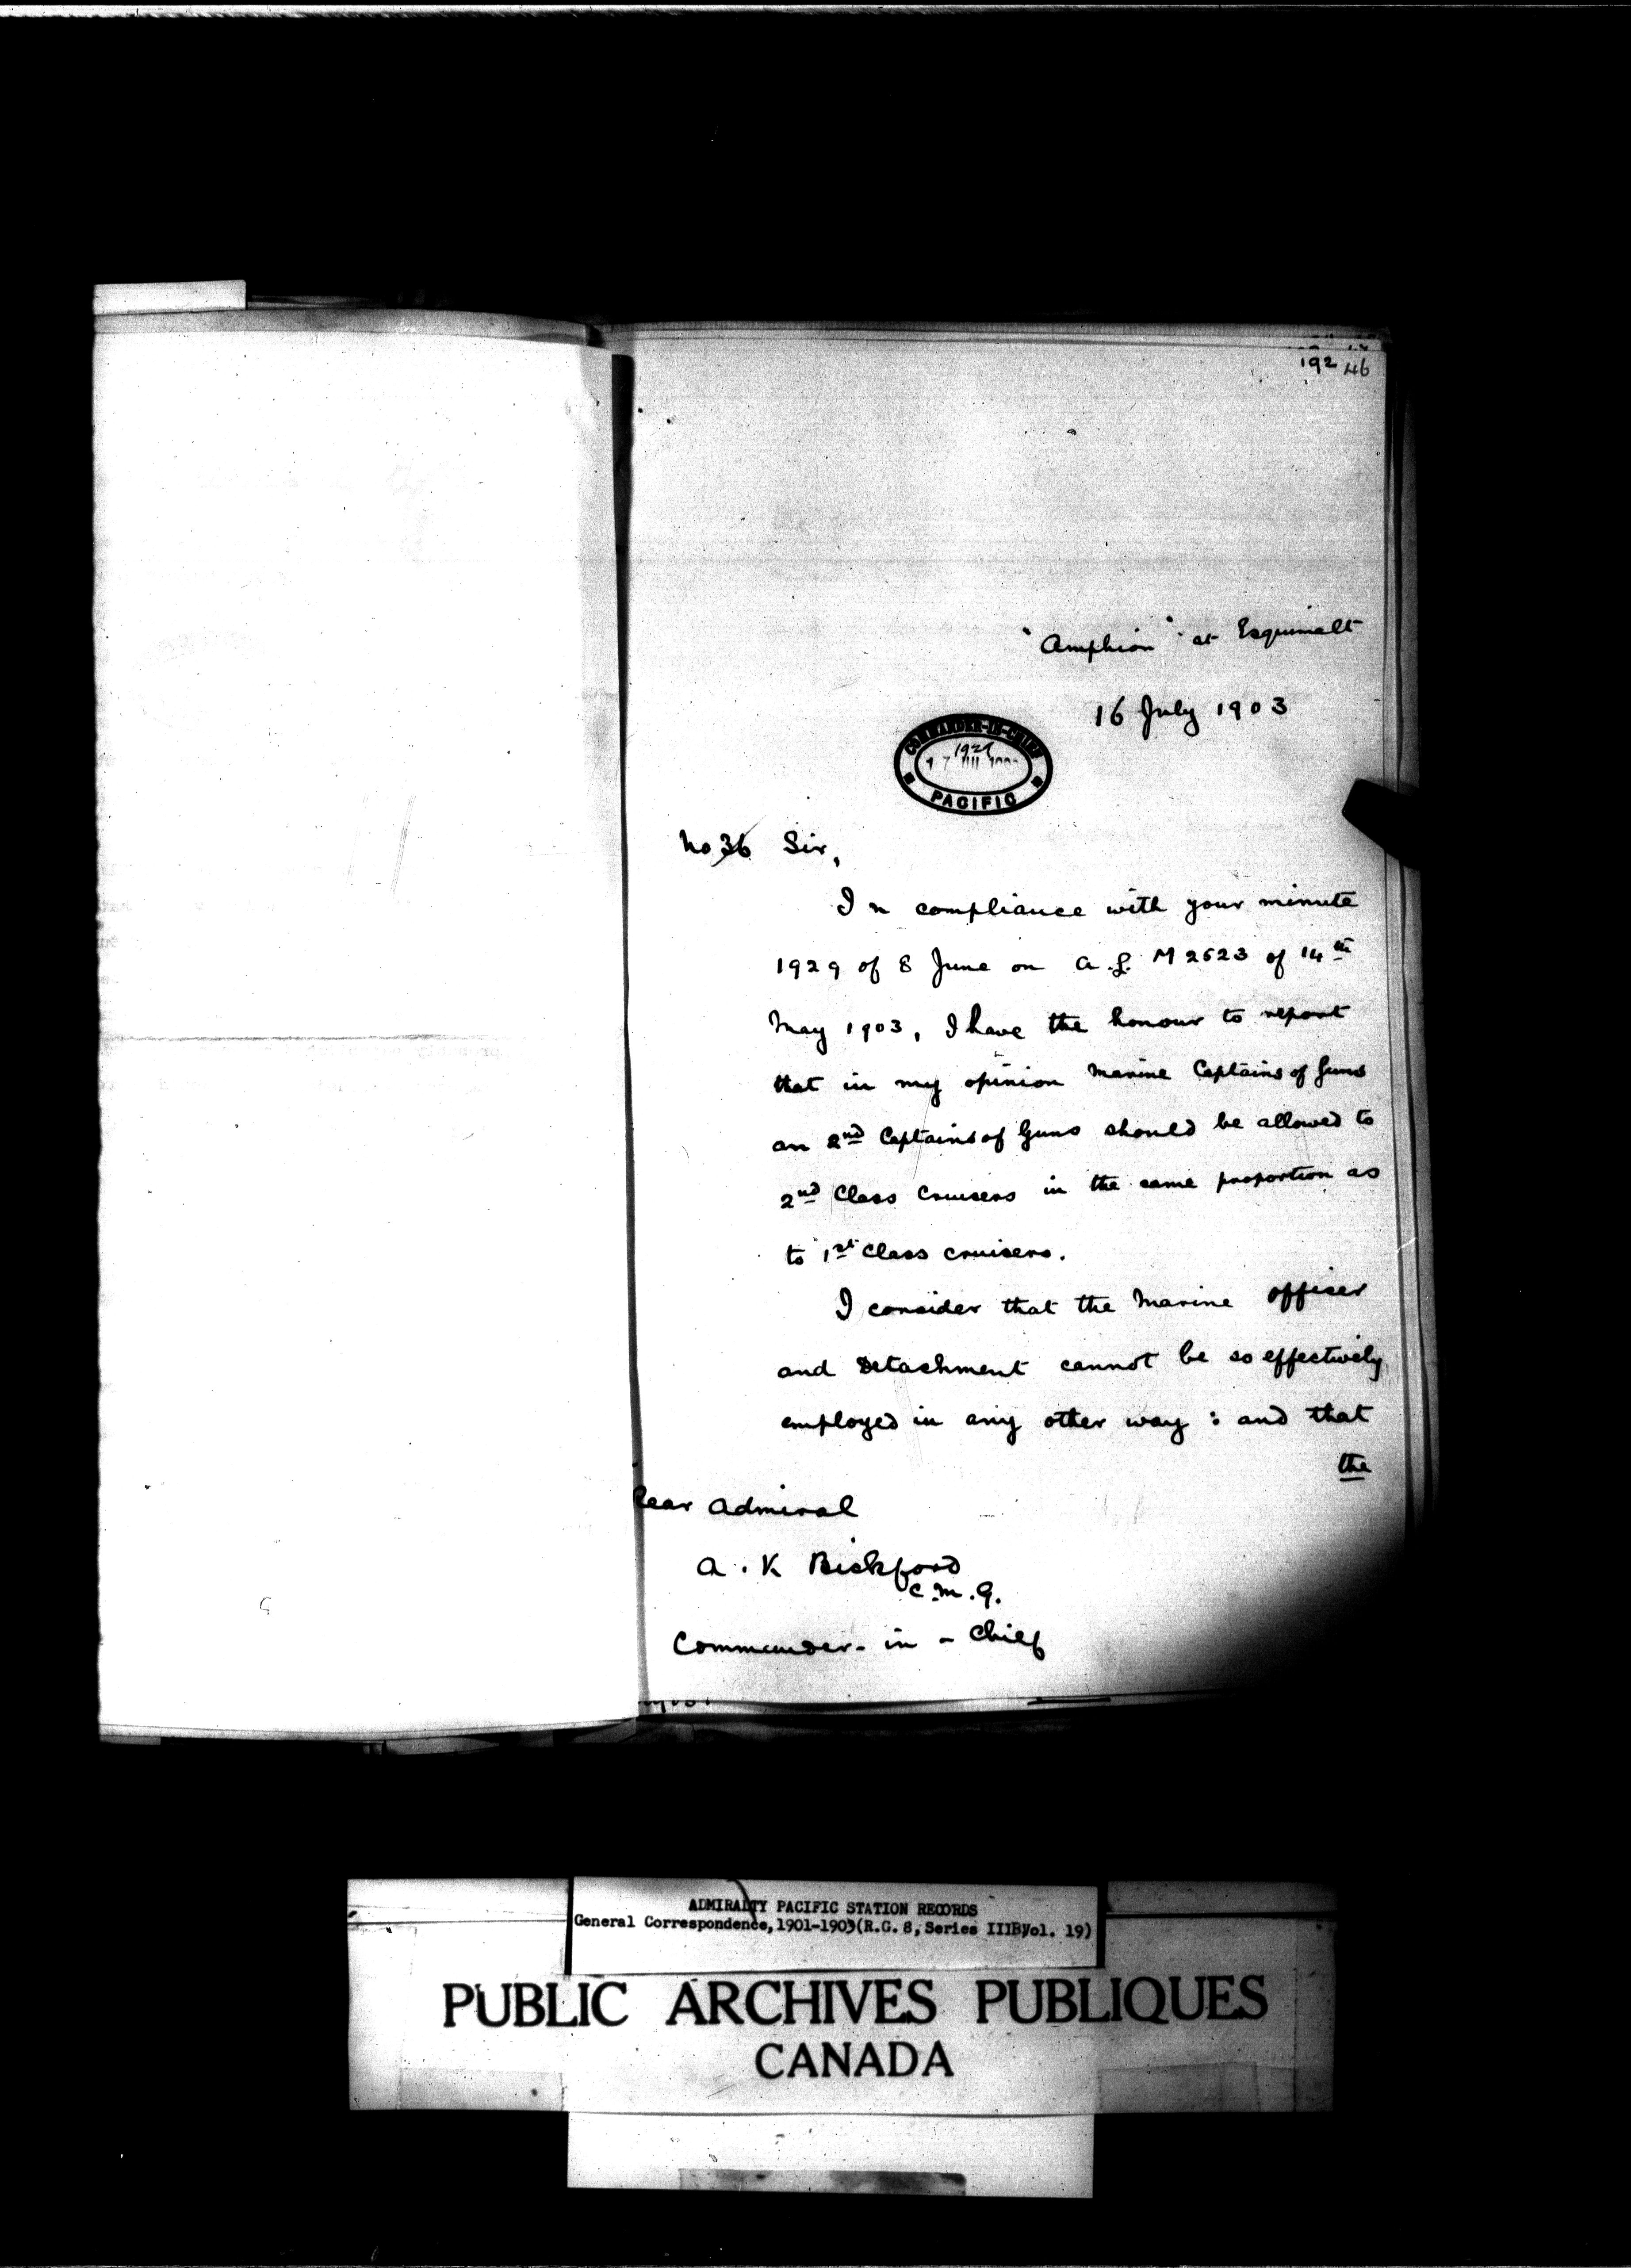 192 46
"Amphion" at Esquimalt
16 July 1903
COMMANDER-IN-CHIEF
1929
17 JUL
PACIFIC
No 36 Sir,
In compliance with your minute
1929 of 8 June on A.L. M2623 of 14th
May 1903, I have the honour to report
that in my opinion Marine Captains of Guns
an 2nd Captains of Guns should be allowed to
2nd Class Cruisers in the same proportion as
to 1st Class cruisers.
I consider that the Marine Officer
and Detachment cannot be so effectively
employed in any other way : and that
the
Rear Admiral
A. K Bickford
C.M.G.
Commander-in-Chief
ADMIRALTY PACIFIC STATION RECORDS
General Correspondence, 1901-1903 (R.G. 8, Series IIIB, Vol. 19)
PUBLIC ARCHIVES PUBLIQUES
CANADA